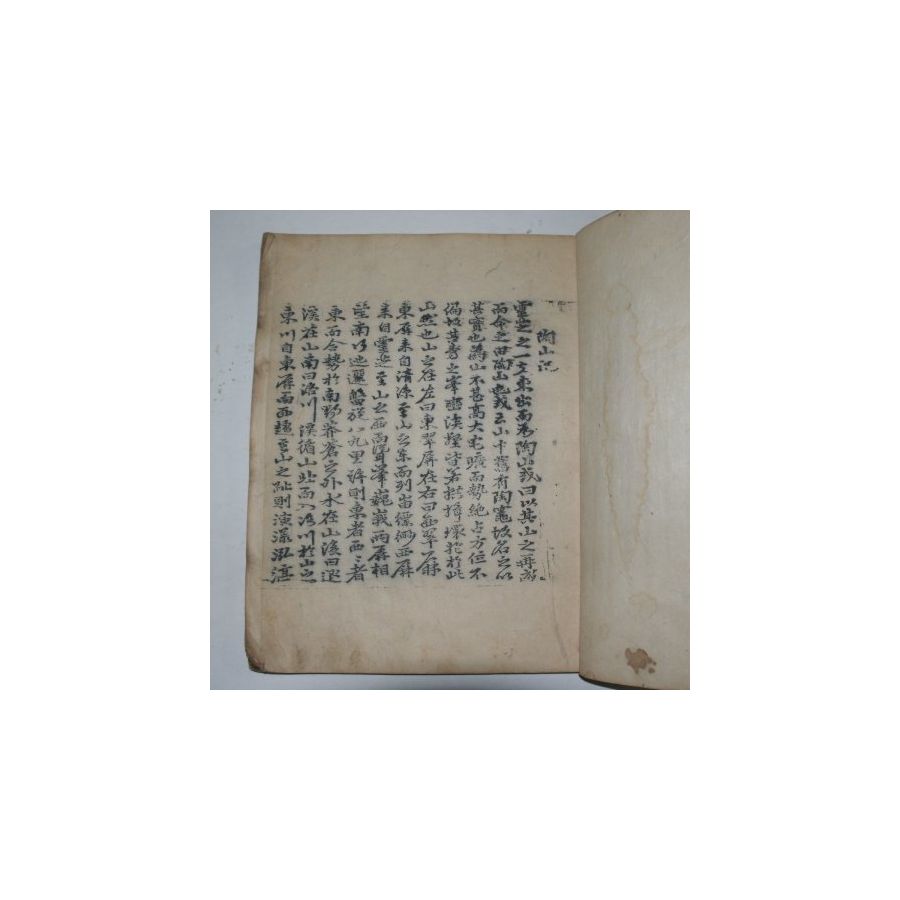 陶山記
靈芝之一支東出而爲陶山或曰以其山之再成
而命之曰陶山也或云山中舊有陶竈故名之以
其實也爲山不甚高大宅曠而勢絶占方位不
偏故其旁之峯巒溪壑皆若拱揖環抱於此
山然也山之在左曰東翠屏在右曰西翠屏
東屏來自清涼至山之東而列岫縹緲西屏
來自靈芝至山之西而聳峯巍峩兩屏相
望南行迤邐盤旋八九里許則東者西西者
東而合勢於南野莽蒼之外水在山後曰退
溪在山南曰洛川溪循山北而入洛川於山之
東川自東屏而西趨至山之趾則演漾泓渟